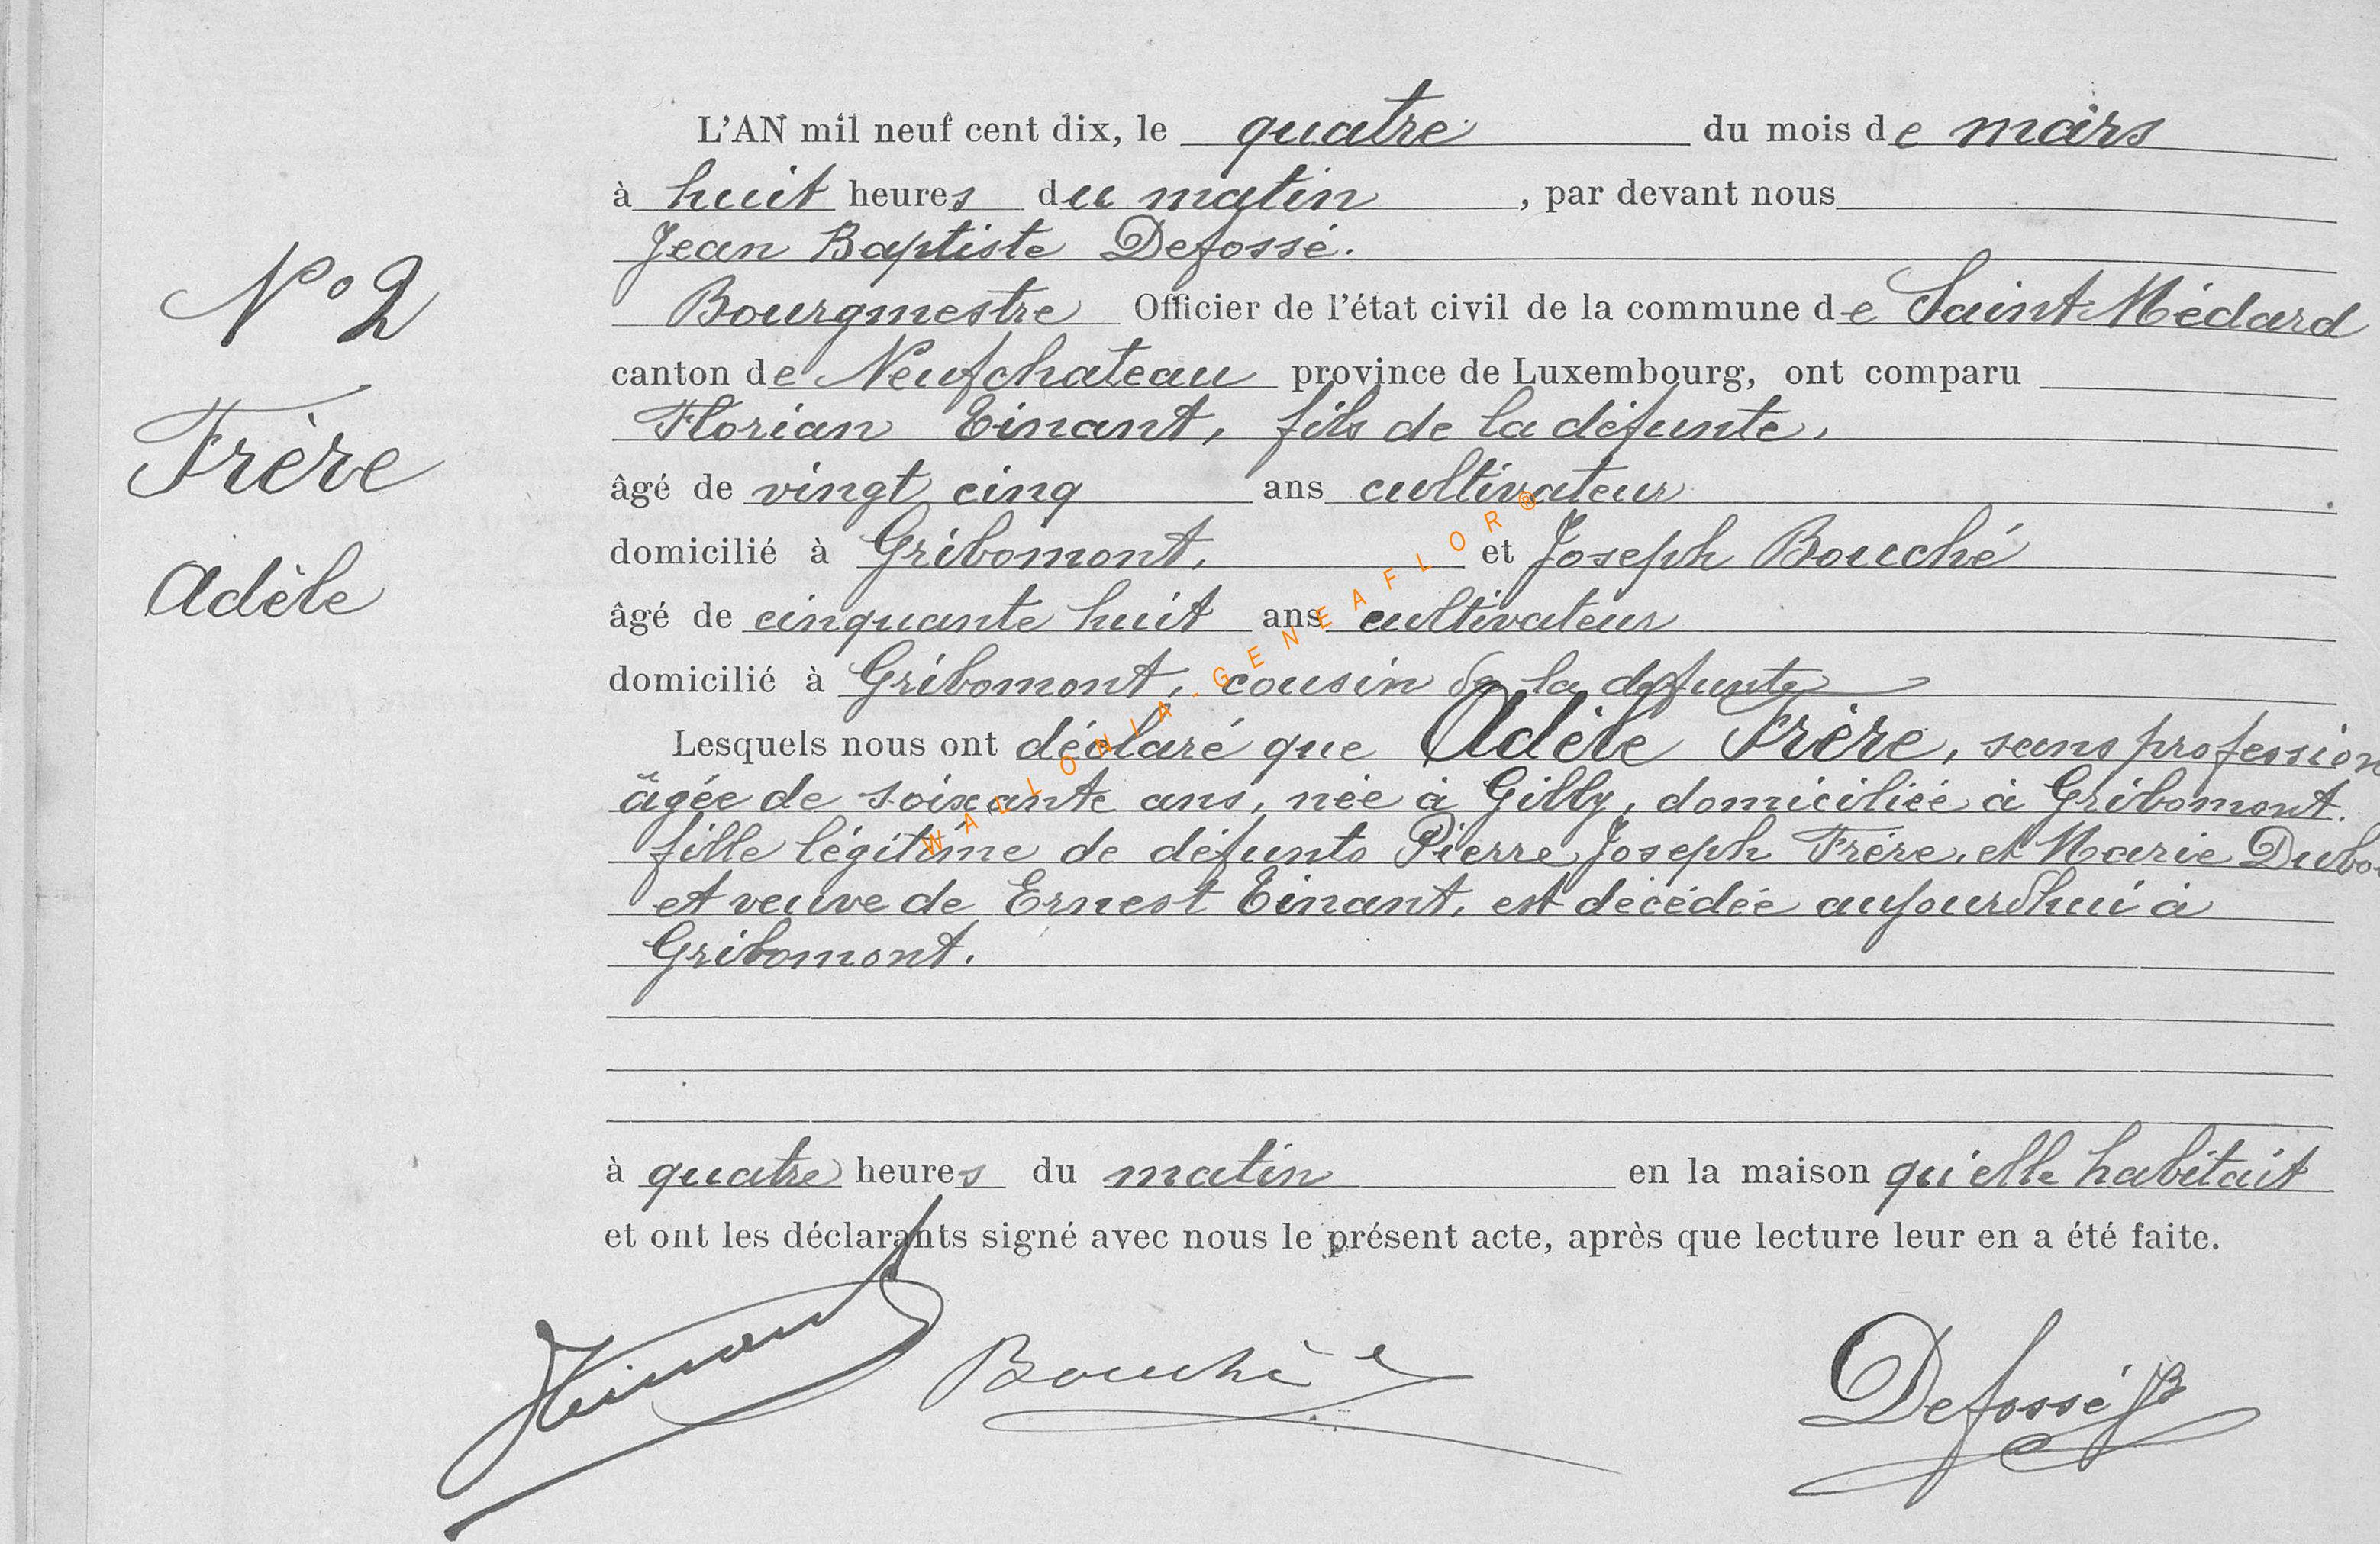 L'AN mil neuf cent dix, le quatre du mois de mars
à huit heures du matin, par devant nous
Jean Baptiste Defossé.
N° 2
Bourgmestre Officier de l'état civil de la commune de Saint Médard
canton de Neufchateau province de Luxembourg, ont comparu
Florian Einant, fils de la défunte,
Frère
âgé de vingt cinq ans cultivateur
domicilié à Gribomont, et Joseph Bouché
Adèle
âgé de cinquante huit ans cultivateur
domicilié à Gribomont, cousin de la defunte
Lesquels nous ont déclaré que Adèle Frère, sans profession
âgée de soixante ans, née à Gilly, domiciliée à Gribomont.
fille légitime de défunts Pierre Joseph Frère, et Marie
et veuve de Ernest Einant, est décédée aujourd'hui à
Gribomont.
à quatre heures du matin en la maison qu'elle habitait
et ont les déclarants signé avec nous le présent acte, après que lecture leur en a été faite.
Bouché Defossé JB
WALLONIA-GENEAFLOR®